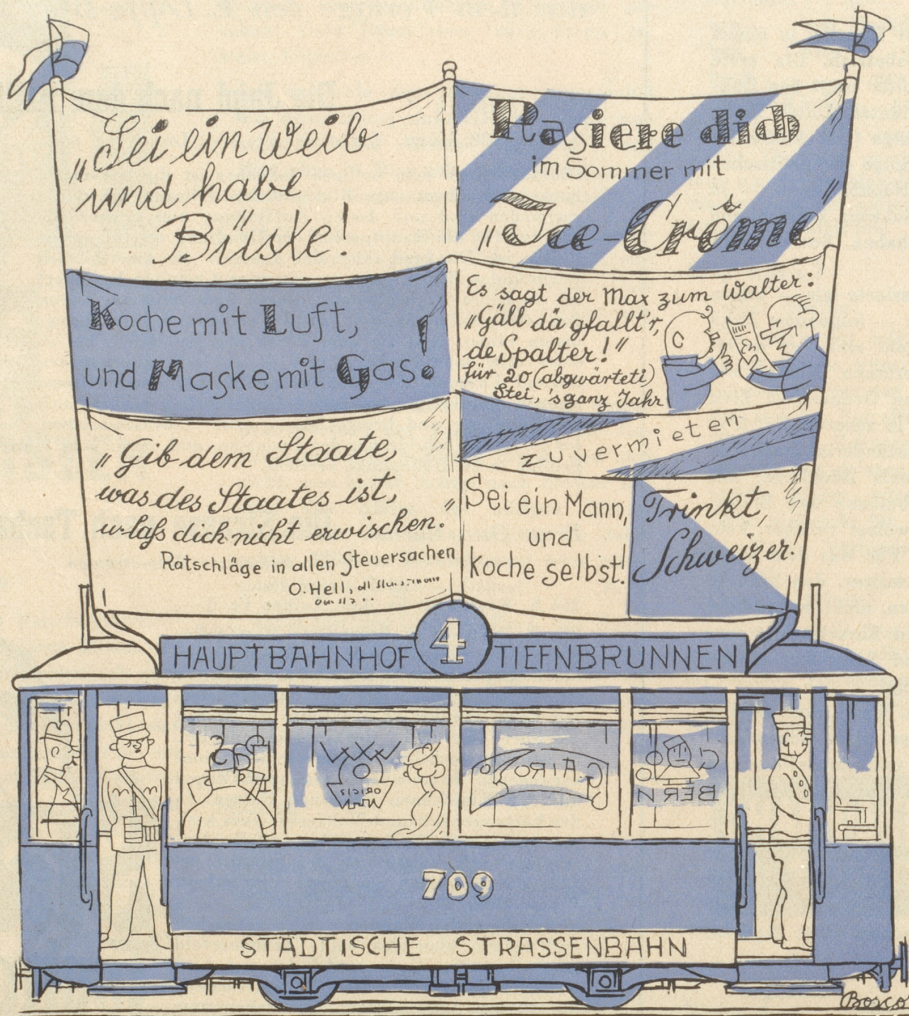 „Sei ein Weib
und habe
Büste!
Rasiere dich
im Sommer mit
"Ice-Crême"
Koche mit Luft,
und Maske mit Gas!
Es sagt der Max zum Walter:
„Gäll dä gfallt'r,
de Spalter!"
für 20 (abgwärteti)
Stei, 's ganz Jahr
„Gib dem Staate,
was des Staates ist,
u. laß dich nicht erwischen."
Ratschläge in allen Steuersachen
O. Hell,
zu vermieten
Sei ein Mann,
und
koche selbst!
Trinkt,
Schweizer!
HAUPTBAHNHOF 4 TIEFNBRUNNEN
CAIRO
BERN
709
STÄDTISCHE STRASSENBAHN
Bosco